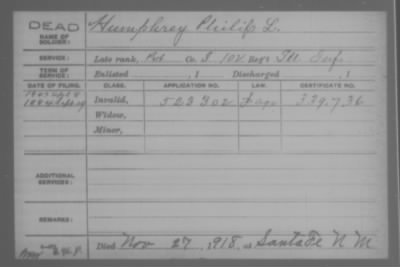 DEAD
NAME OF SOLDIER:
Humphrey Philip L.
SERVICE:
Late rank, Pvt Co. I 102 Reg't Ill Inf
TERM OF SERVICE:
Enlisted , 1 Discharged , 1
DATE OF FILING. CLASS. APPLICATION NO. LAW. CERTIFICATE NO.
Invalid, 523302 339.736
Widow,
Minor,
ADDITIONAL SERVICES:
REMARKS:
Died Nov 27, 1918, at Santa Fe N M